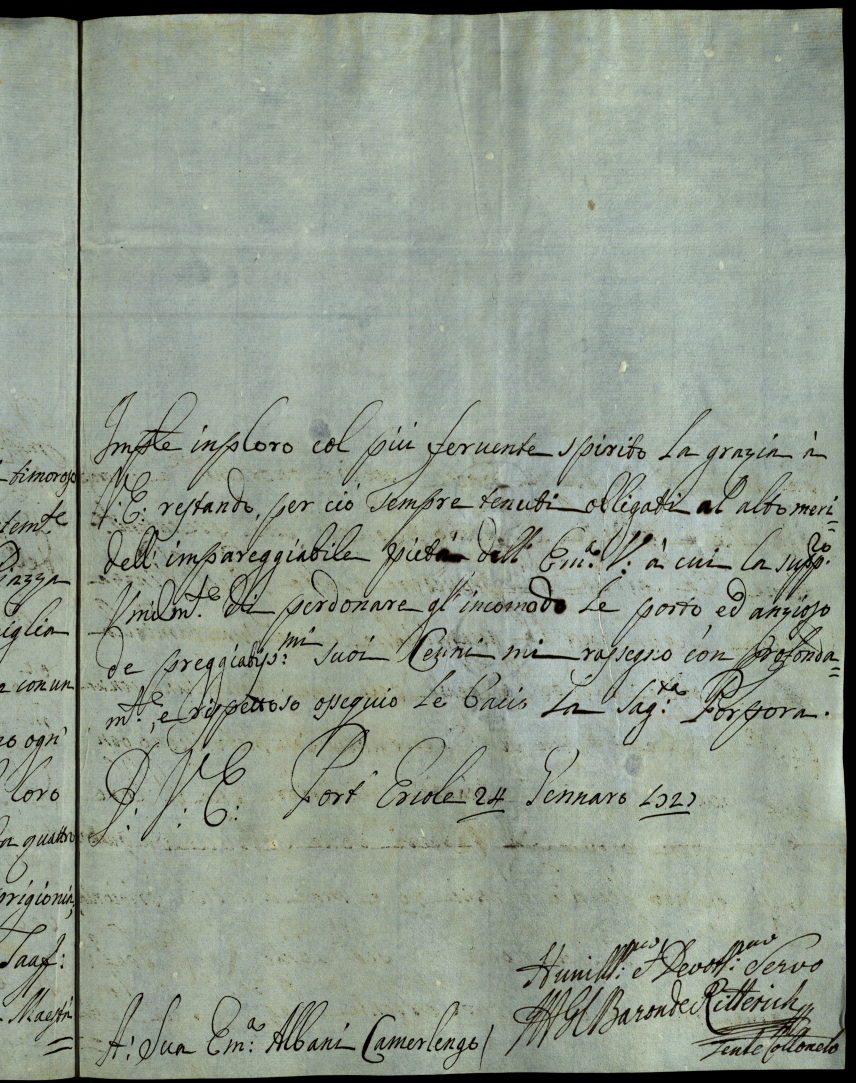 timoroso
temte
Piazza
iglia
con un
no ogn'
loro
a quattro
prigionia,
Maestri
inploro col più feruente spirito La grazia à
V: E: restando, per ciò sempre tenuti obligati al alto meri=
dell' impareggiabile pietà dell' Em:a V: à cui la supp:co
Vmilm:te di perdonare gl' incomodo Le porto ed anzioso
de preggiatiss:mi suoi Cenni mi rassegno con profonda=
m:te, e rispettoso ossequio Le bacio La Sag:ta Porpora.
D: V: E: Port' Ercole 24 Gennaro 1727
Humill:mo Devott:mo Servo
Baron de Ritterich
Tente Collonelo
A: Sua Em:a Albani Camerlengo